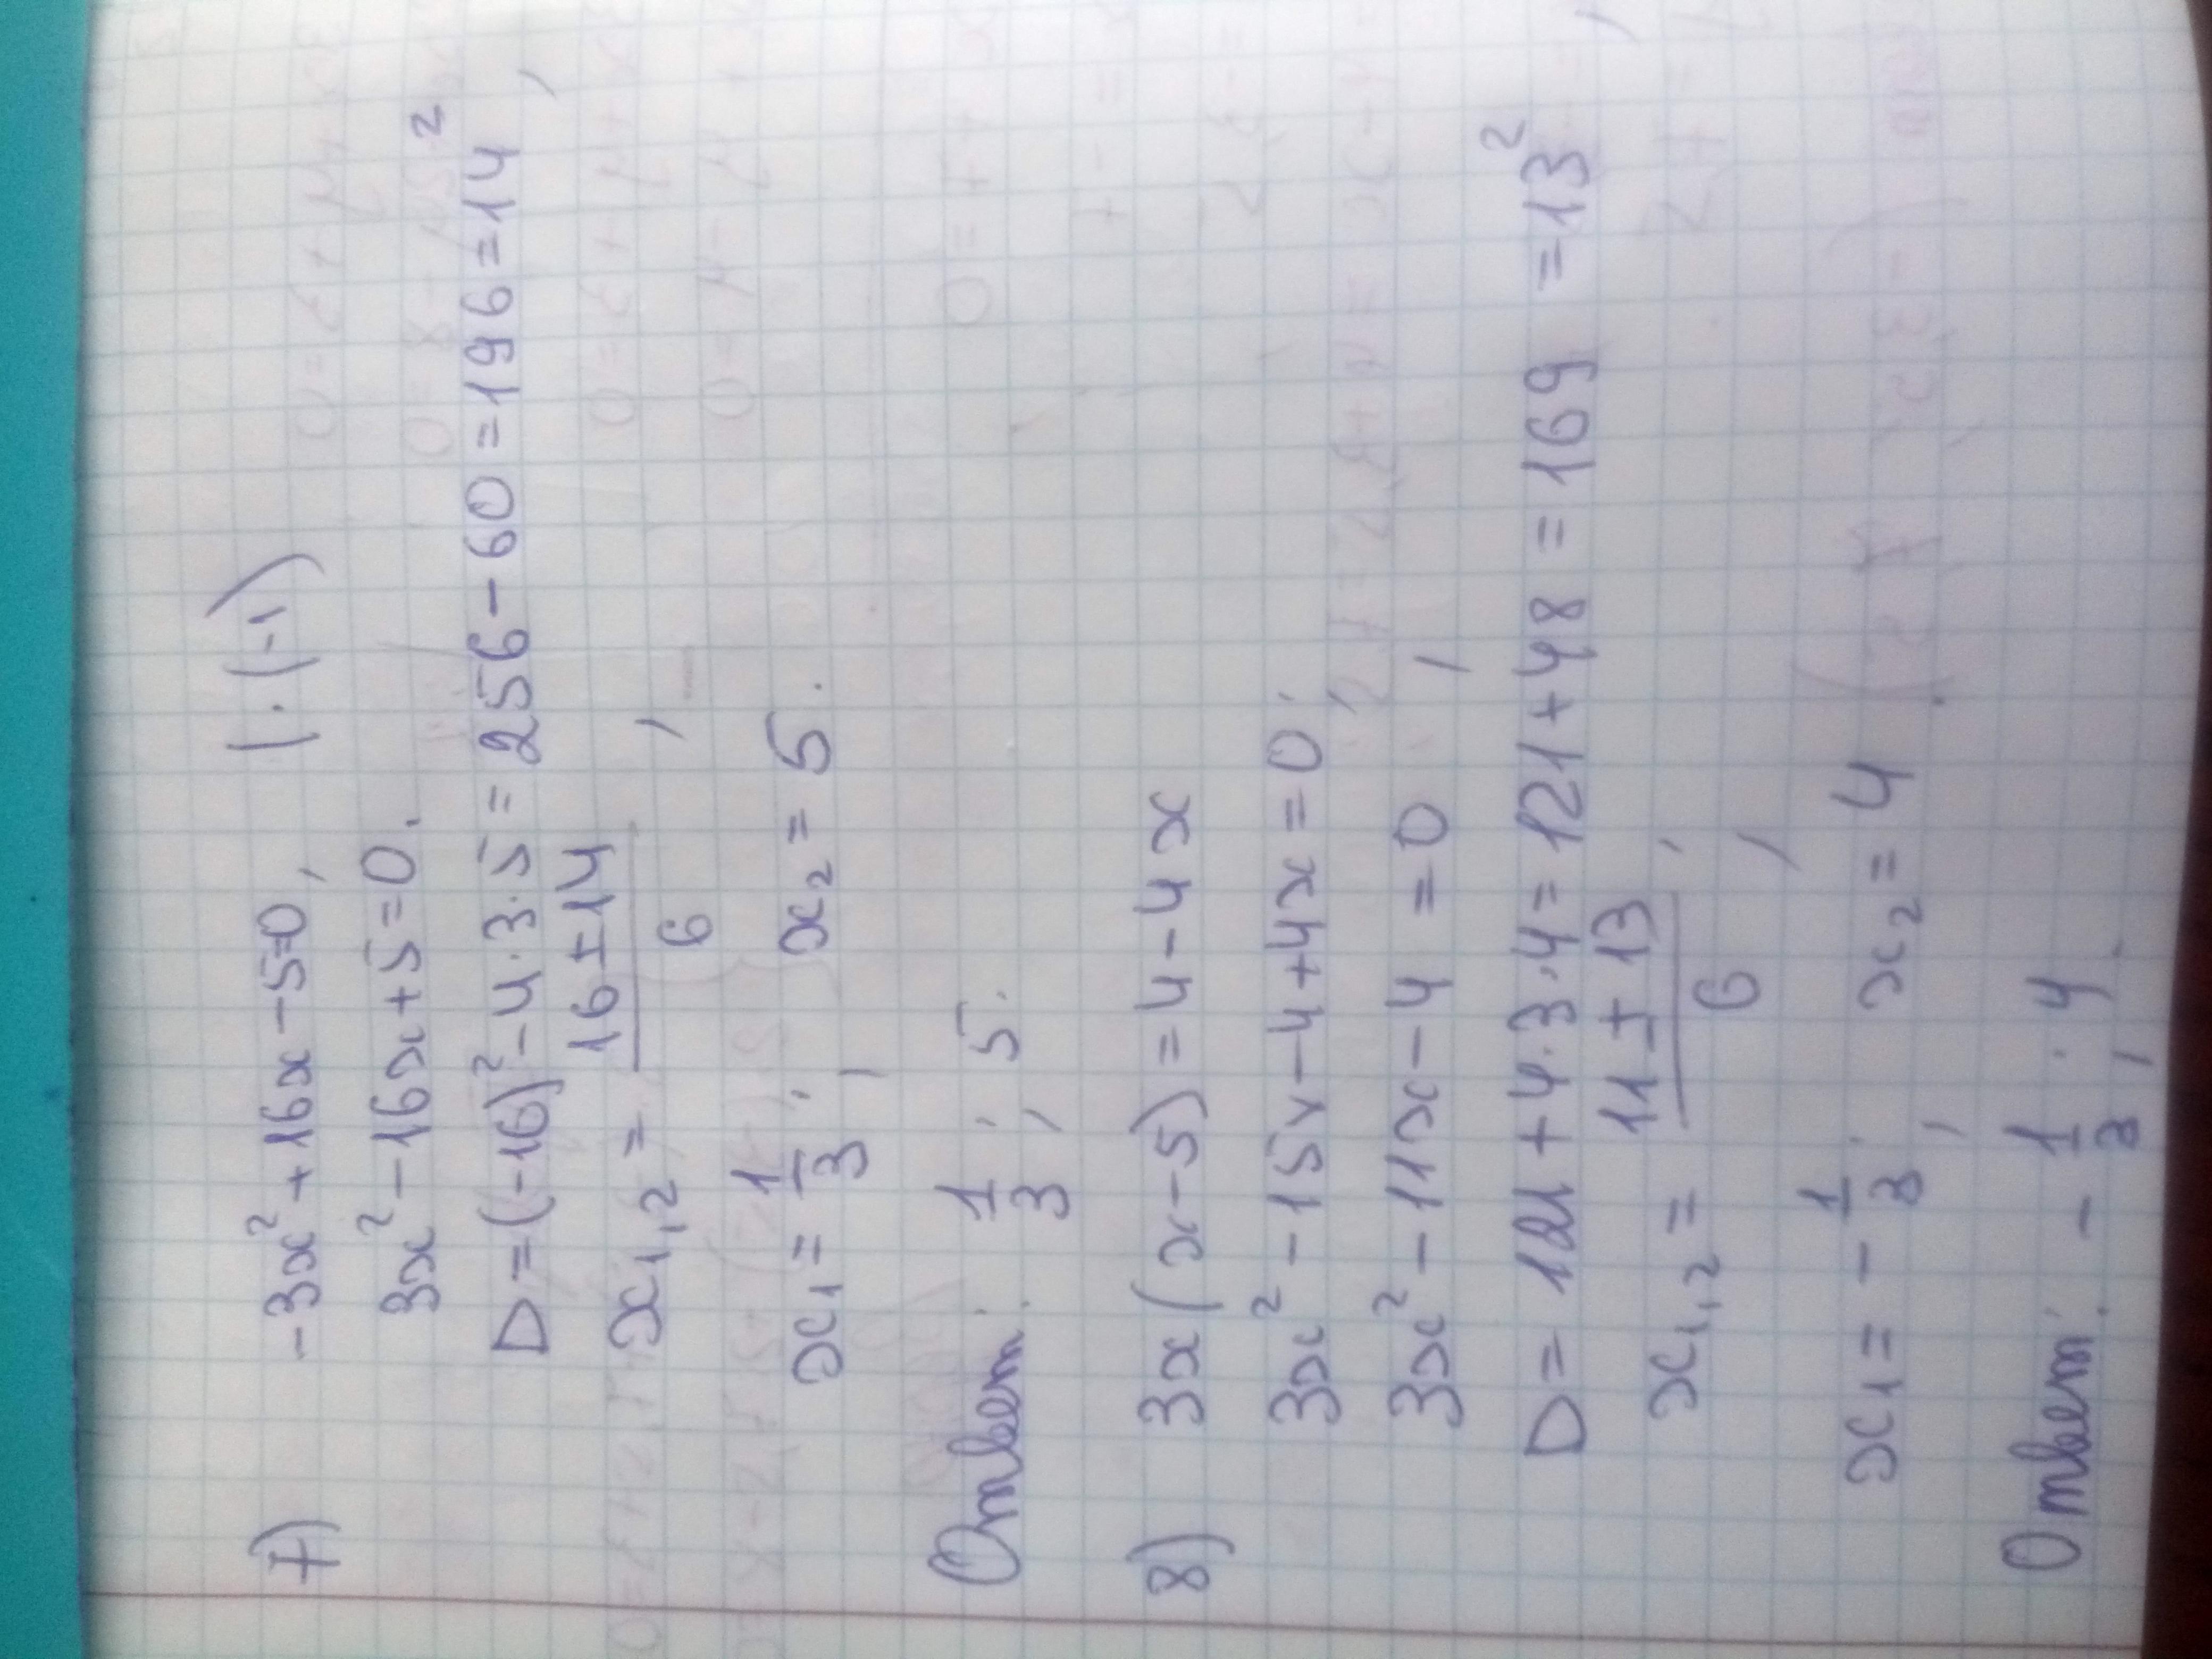 7) -3x² + 16x - 5=0, | · (-1)
3x² - 16x + 5 = 0.
D = (-16)² - 4·3·5 = 256 - 60 = 196 = 14²,
x₁,₂ = (16 ± 14)/6 ;
x₁ = 1/3 ; x₂ = 5.
Ответ: 1/3 ; 5.
8) 3x (x-5) = 4 - 4x
3x² - 15x - 4 + 4x = 0;
3x² - 11x - 4 = 0,
D = 121 + 4·3·4 = 121 + 48 = 169 = 13²,
x₁,₂ = (11 ± 13)/6 ;
x₁ = - 1/3 ; x₂ = 4
Ответ: - 1/3 ; 4.